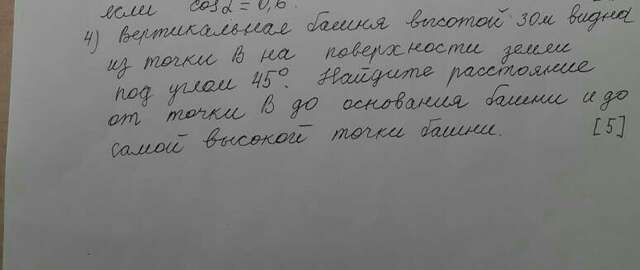 если cosα = 0,6.
4) Вертикальная башня высотой 30м видна
из точки В на поверхности земли
под углом 45°. Найдите расстояние
от точки В до основания башни и до
самой высокой точки башни. [5]